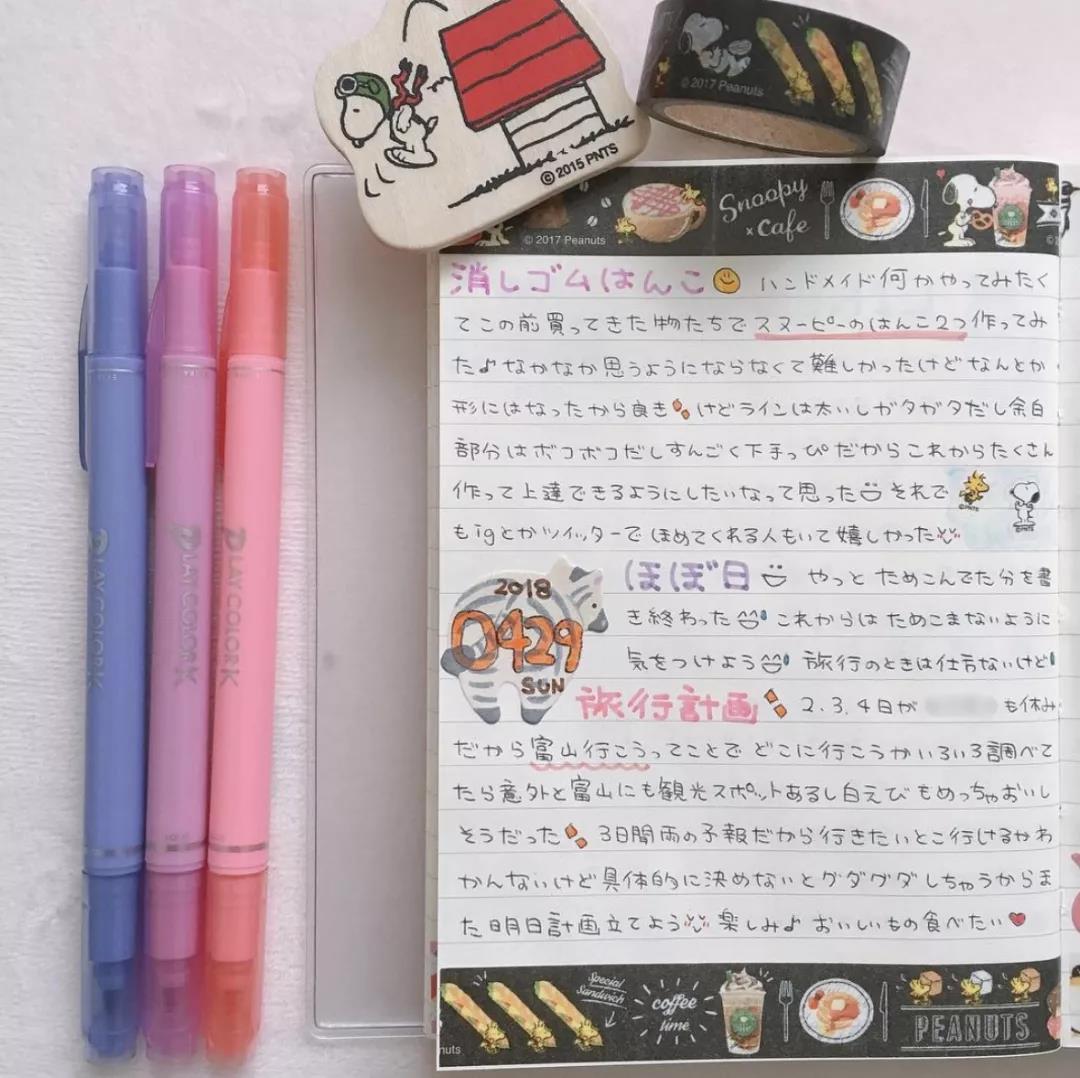 © 2015 PNTS
© 2017 Peanuts
© 2017 Peanuts
Snoopy
× Cafe
消しゴムはんこ ハンドメイド何かやってみたく
てこの前買ってきた物たちでスヌーピーのはんこ2つ作ってみ
た♪なかなか思うようにならなくて難しかったけどなんとか
形にはなったから良きけどラインは太いしガタガタだし余白
部分はボコボコだしすんごく下手っぴだからこれからたくさん
作って上達できるようにしたいなって思った それで
もigとかツイッターでほめてくれる人もいて嬉しかった
ほぼ日 やっとためこんでた分を書
き終わった これからはためこまないように
気をつけよう 旅行のときは仕方ないけど
2018
0429
SUN
旅行計画 2.3.4日が も休み
だから富山行こうってことでどこに行こうかいろいろ調べて
たら意外と富山にも観光スポットあるし白えびもめっちゃおいし
そうだった 3日間雨の予報だから行きたいとこ行けるかわ
かんないけど具体的に決めないとグダグダしちゃうからま
た明日計画立てよう 楽しみ♪おいしいもの食べたい♥
Special
Sandwich
coffee
time
PEANUTS
nuts
PLAY COLOR K
PLAY COLOR K
PLAY COLOR K